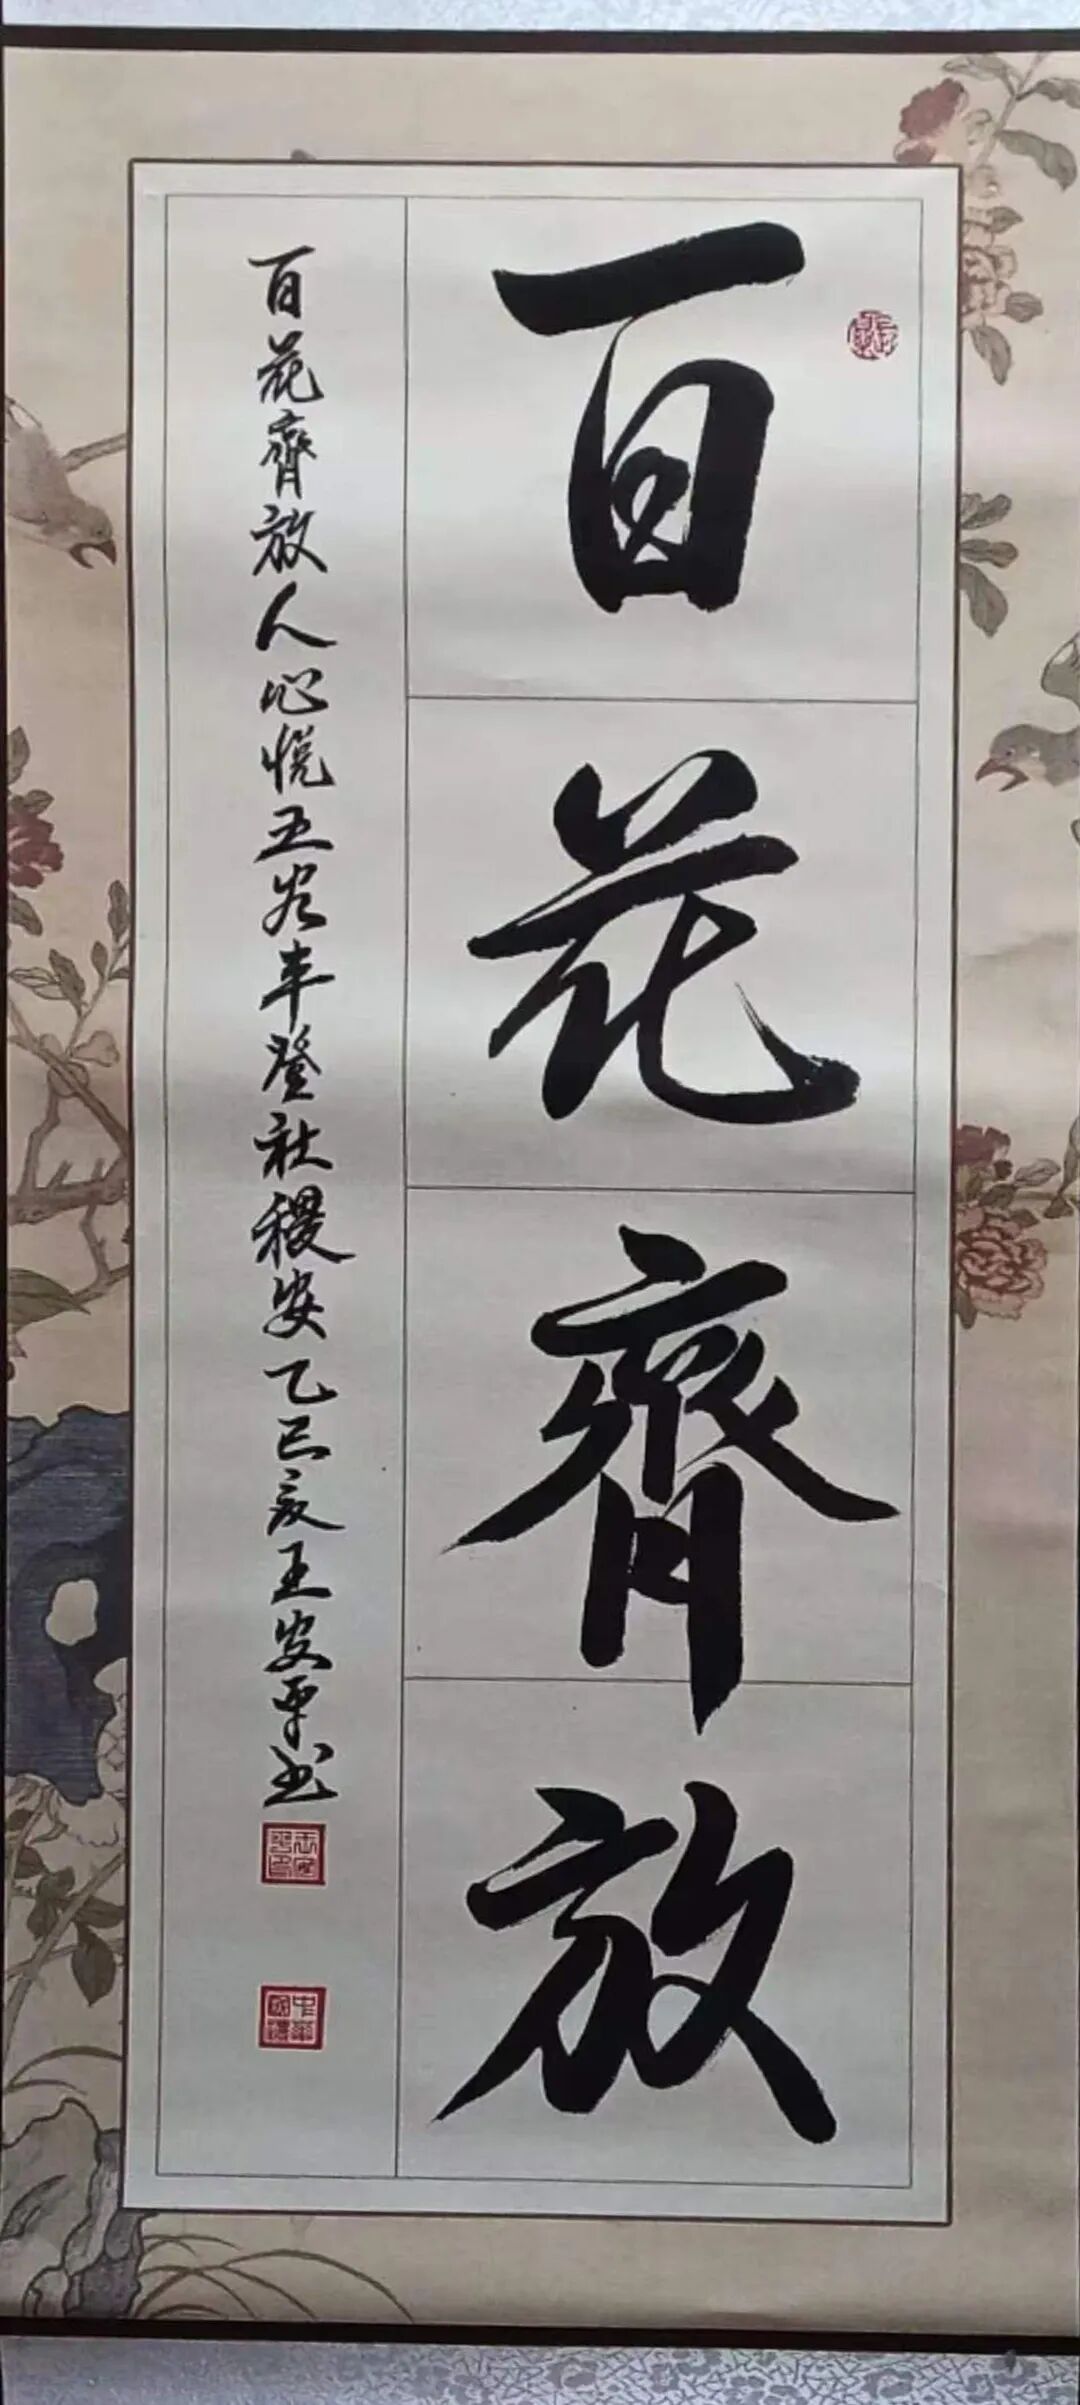 百花齊放
百花齊放人心悅五谷丰登社稷安乙巳夏王安平书